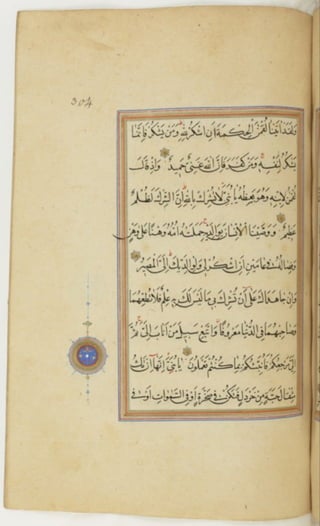 304
ولقد اتينا لقمن الحكمة ان اشكر لله ومن يشكر فانما
يشكر لنفسه ومن كفر فان الله غني حميد واذ قال
لقمن لابنه وهو يعظه يا بني لا تشرك بالله ان الشرك لظلم
عظيم ووصينا الانسان بوالديه حملته امه وهنا على وهن
وفصاله في عامين ان اشكر لي ولوالديك الي المصير
وان جاهداك على ان تشرك بي ما ليس لك به علم فلا تطعهما
وصاحبهما في الدنيا معروفا واتبع سبيل من اناب الي ثم
الي مرجعكم فانبئكم بما كنتم تعملون يا بني انها ان تك
مثقال حبة من خردل فتكن في صخرة او في السموات او في